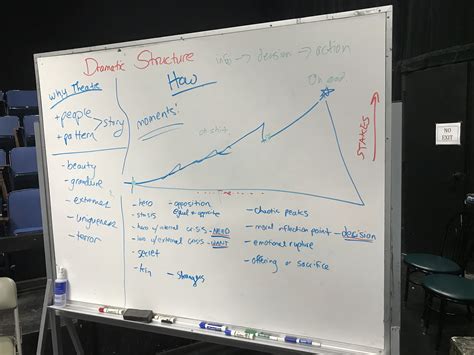 Dramatic Structure
info → decision → action
Why Theatre
How
+ people
+ pattern
> story
moments:
oh shit
STAKES
NO
EXIT
- beauty
- grandure
- extremes
- uniqueness
- terror
Time
- hero
- stasis
- hero w/ internal crisis - NEED
w/ external crisis - WANT
- secret
- kin
- strangers
- opposition
equal & opposite
- chaotic peaks
- moral inflection point - decision
- emotional rupture
- offering or sacrifice